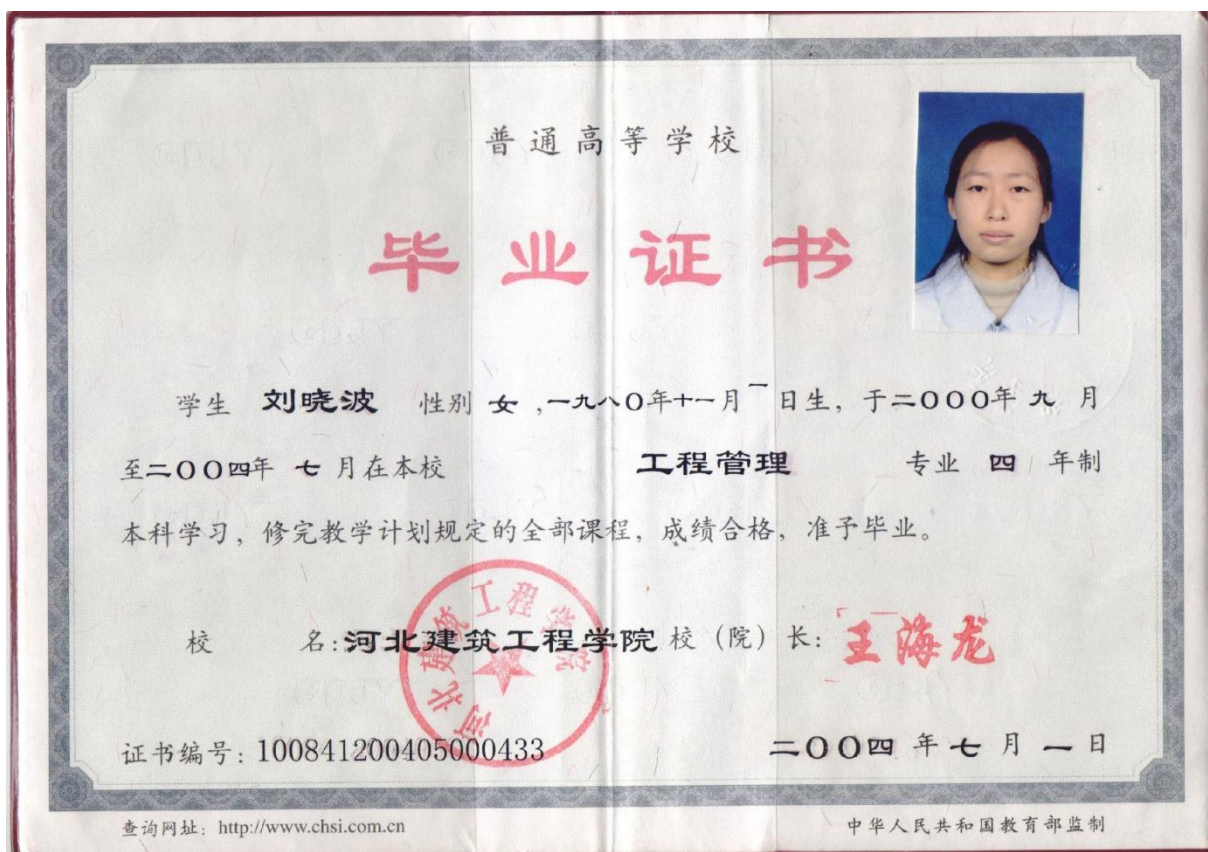 普通高等学校
毕业证书
学生 刘晓波 性别 女，一九八〇年十一月一日生，于二〇〇〇年九月
至二〇〇四年七月在本校 工程管理 专业 四 年制
本科学习，修完教学计划规定的全部课程，成绩合格，准予毕业。
校 名：河北建筑工程学院 校（院）长：王海龙
河北建筑工程学院
证书编号：100841200405000433 二〇〇四年七月一日
查询网址：http://www.chsi.com.cn 中华人民共和国教育部监制